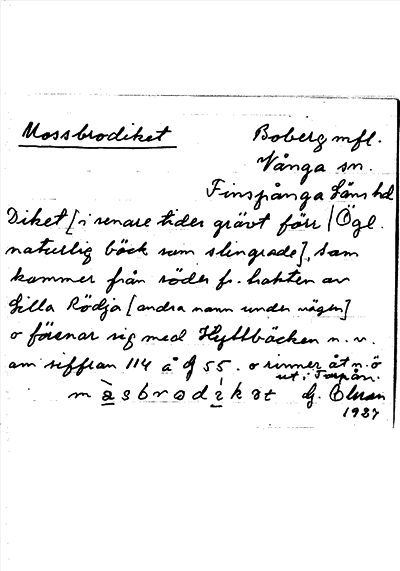 Mossbrodiket
Boberg mfl.
Vånga sn.
Finspånga läns hd
Diket [i senare tider grävt förr / Ögl.
naturlig bäck som slingrade], som
kommer från söder fr. trakten av
Lilla Rödja [andra namn under vägen]
o förenar sig med Hyttbäcken n. v.
om siffran 114 å g 55. o rinner åt n.ö
ut i Torpån.
m å s b r o d i k ə t
1937